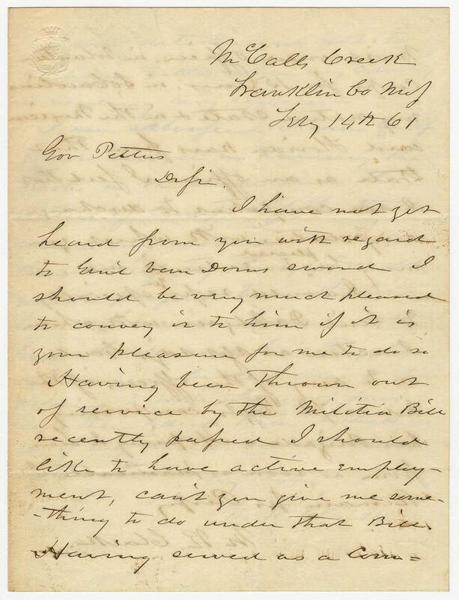 McCalls Creek
Franklin Co Miss
Feby 14th 61
Gov Pettus
Dr Sir.
I have not yet
heard from you with regard
to Genl Van Dorns sword I
should be very much pleased
to convey it to him if it is
your pleasure for me to do so
Having been thrown out
of service by the Militia Bill
recently passed I should
like to have active employ-
ment, can't you give me some-
-thing to do under that Bill.
Having served as a Com=